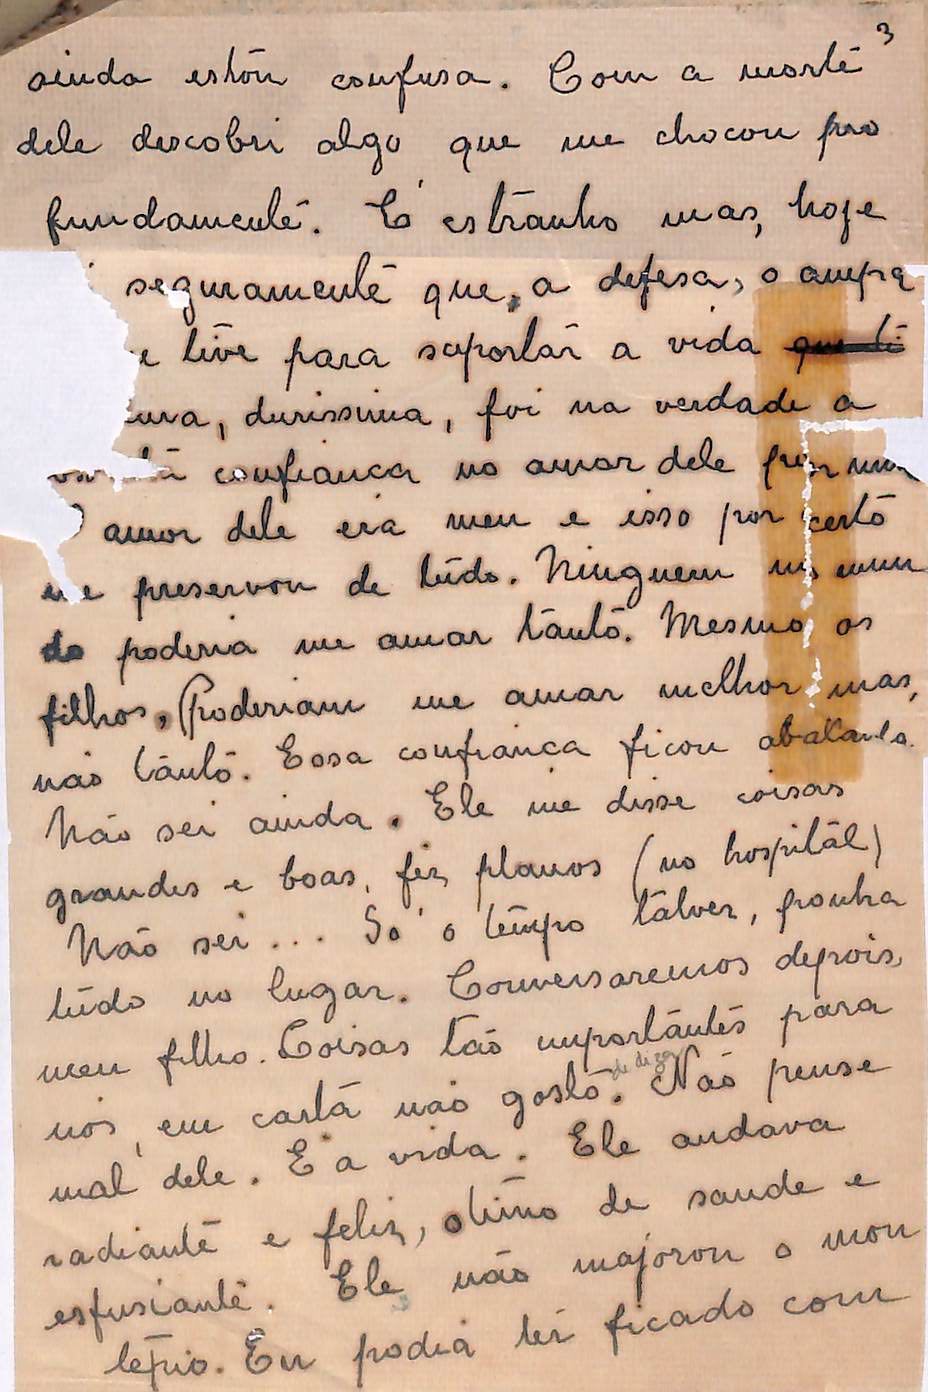 3
ainda estou confusa. Com a morte
dele descobri algo que me chocou pro
fundamente. É estranho mas, hoje
seguramente que, a defesa, o ampa
e tive para suportar a vida
dura, durissima, foi na verdade a
confiança no amor dele por mim
amor dele era meu e isso por certo
me preservou de tudo. Ninguem no mun
do poderia me amar tanto. Mesmo os
filhos, Poderiam me amar melhor mas,
não tanto. Essa confiança ficou abalada.
Não sei ainda. Ele me disse coisas
grandes e boas, fez planos (no hospital)
Não sei ... Só o tempo talvez, ponha
tudo no lugar. Conversaremos depois,
meu filho. Coisas tão importantes para
nós, em carta não gosto de dizer. Não pense
mal dele. É a vida. Ele andava
radiante e feliz, otimo de saude e
esfusiante. Ele não majorou o mon
tepio. Eu podia ter ficado com